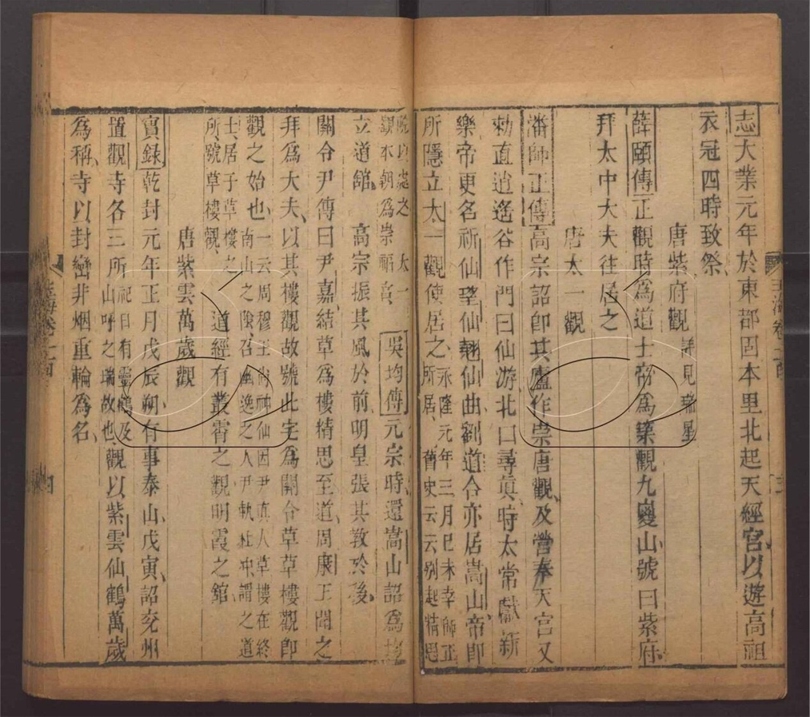 志大業元年於東都固本里北起天經宮以遊高祖
衣冠四時致祭
唐紫府觀詳見瑞星
薛頤傳正觀時為道士帝為築觀九嵕山號曰紫府
拜太中大夫往居之
唐太一觀
潘師正傳高宗詔即其廬作崇唐觀及營奉天宮又
勑直逍遙谷作門曰仙游北曰尋真時太常獻新
樂帝更名祈仙望仙翹仙曲劉道合亦居嵩山帝即
所隱立太一觀使居之永隆元年三月己未幸師正
所居舊史云云別起精思
觀以處之太一
觀本朝為崇福宮吳均傳元宗時還嵩山詔為
立道館高宗振其風於前明皇張其教於後
關令尹傳曰尹嘉結草為樓精思至道周康王聞之
拜為大夫以其樓觀故號此宅為關令草樓觀即
觀之始也一云周穆王尚神仙因尹真人草樓在終
南山之陰召幽逸之人尹軌杜沖謂之道
士居于草樓之
所號草樓觀道經有叢霄之觀明霞之館
唐紫雲萬歲觀
實錄乾封元年正月戊辰朔有事泰山戊寅詔兗州
置觀寺各三所祀日有靈鶴及
山呼之瑞故也觀以紫雲仙鶴萬歲
為稱寺以封巒非烟重輪為名